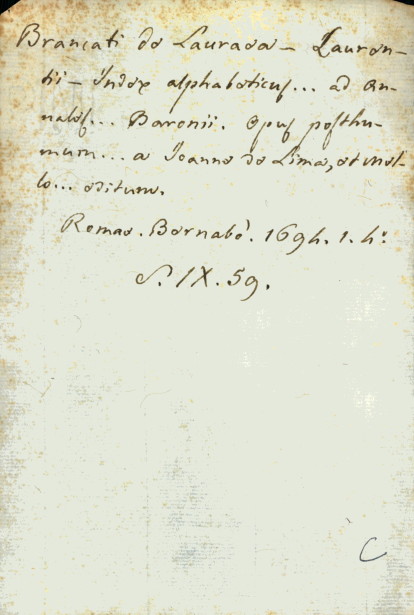 Brancati de Lauraea – Lauren-
tii – Index alphabeticus... ad An-
nales... Baronii. Opus posthu-
mum... a Joanne de Lima, et Mel-
lo... editum.
Romae. Bernabò. 1694. 1. 4º
S. IX. 59.
C